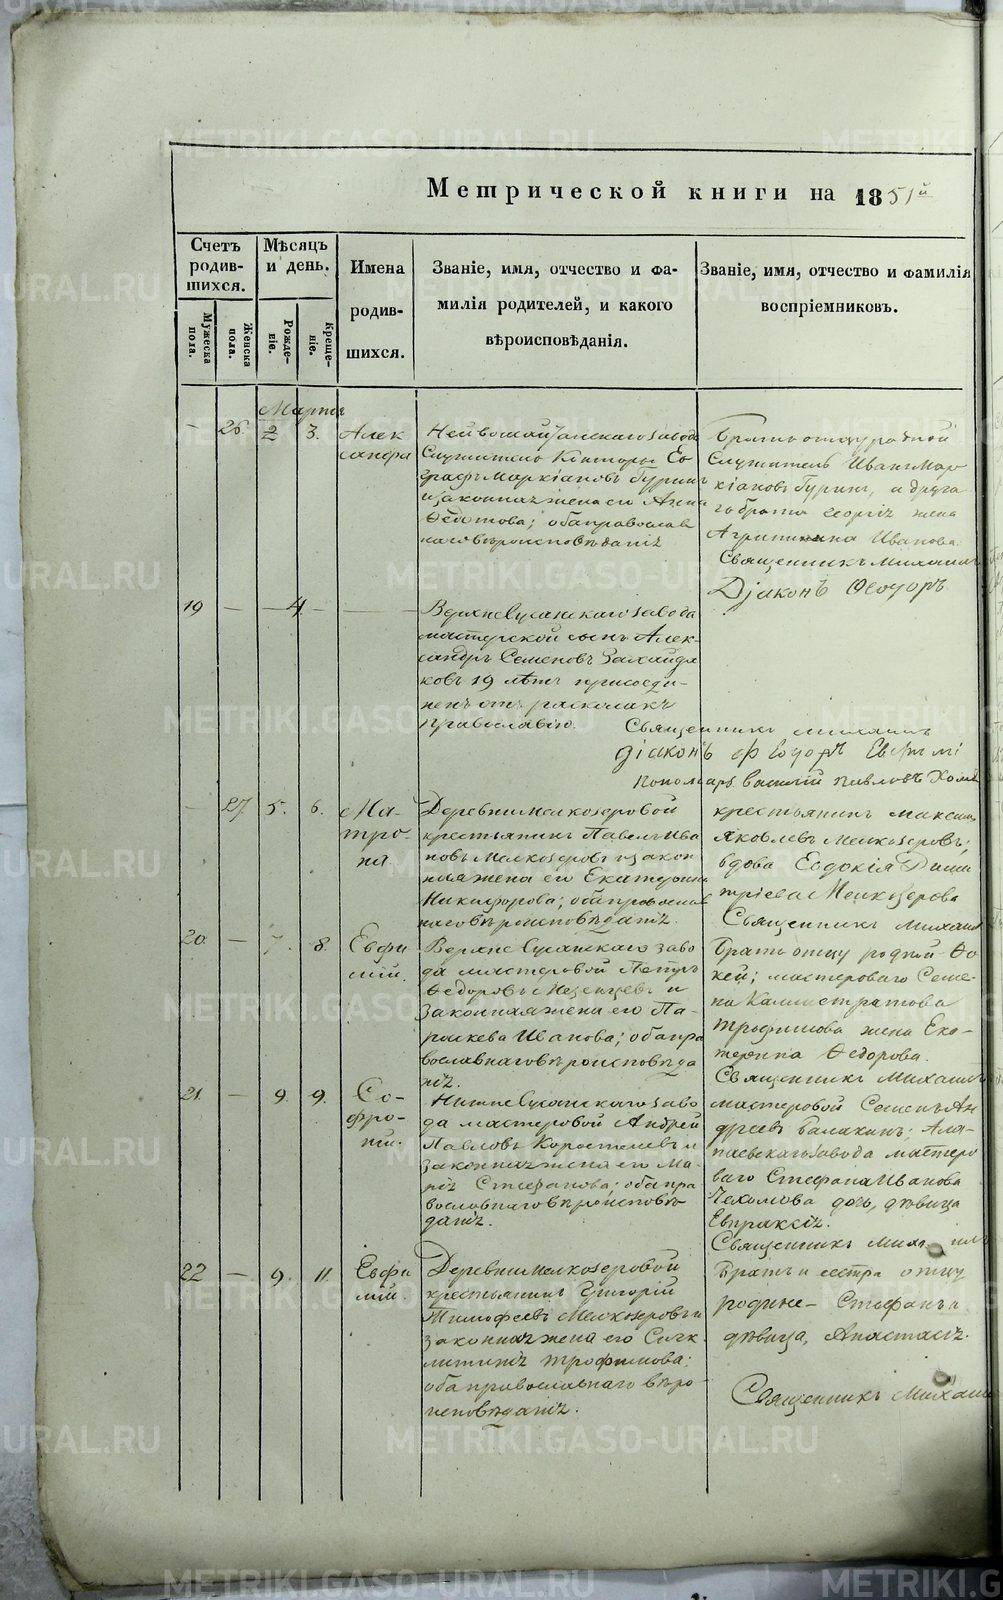 METRIKI.GASO-URAL.RU
Метрической книги на 1851й
Счетъ родив-шихся.
Мѣсяцъ и день.
Имена родив-шихся.
Званіе, имя, отчество и фа-
милія родителей, и какого
вѣроисповѣданія.
Званіе, имя, отчество и фамилія
воспріемниковъ.
Мужеска пола.
Женска пола.
Рожде-ніе.
Креще-ніе.
Марта
- 26. 2 3. Алек
сандра
завода
Служитель Конторы Ев
графъ Маркіановъ Гуринъ
и законная жена его Анна
Ѳедотова; оба православ
наго вѣроисповѣданія
Братъ отцу родной
Служитель Иванъ Мар
кіановъ Гуринъ, и друга
го брата Георгія жена
Агрипина Иванова.
Священникъ Михаилъ
Діаконъ Ѳеодоръ
19 — — 4 — —
Верхнесусанскаго завода
мастерской сынъ Алек-
сандръ Семеновъ
ковъ 19 лѣтъ присоеди-
ненъ отъ раскола къ
православію.
Священникъ Михаилъ
Діаконъ Ѳеодоръ
Пономарь Василій Павловъ
- 27. 5. 6. Ма-
тро-
на
Деревни Мелкозеровой
крестьянинъ Павелъ Ива
новъ Мелкозеровъ и закон
ная жена его Екатерина
Никифорова; оба православ
наго вѣроисповѣданія.
крестьянинъ Максимъ
Яковлевъ Мелкозеровъ;
вдова Евдокія Дими
тріева Мелкозерова
Священникъ Михаилъ
20. — 7. 8. Евфи
мій.
Верхнесусанскаго заво
да мастеровой Петръ
Ѳедоровъ и
законная жена его Па-
раскева Иванова; оба пра
вославнаго вѣроисповѣда
нія.
Братъ отцу родной Ѳо
кей; мастероваго Семе-
на Каллистратова
Трофимова жена Ека-
терина Ѳедорова.
Священникъ Михаилъ
21. — 9. 9. Со-
фро-
ній.
Нижнесусанскаго заво
да мастеровой Андрей
Павловъ Коростелевъ и
законная жена его Ма-
рія Стефанова; оба пра
вославнаго вѣроисповѣ
данія.
мастеровой Семенъ Ан
дреевъ Балакинъ; Ала-
паевскаго завода мастеро
ваго Стефана Иванова
дочь, дѣвица
Евпраксія.
Священникъ Михаилъ
22 — 9. 11. Евфи
мій.
Деревни Мелкозеровой
крестьянинъ Григорій
Тимофеевъ Мелкозеровъ и
законная жена его Синк
литикія Трофимова;
оба православнаго вѣро
исповѣданія.
Братъ и сестра отцу
родные — Стефанъ и
дѣвица, Анастасія.
Священникъ Михаилъ